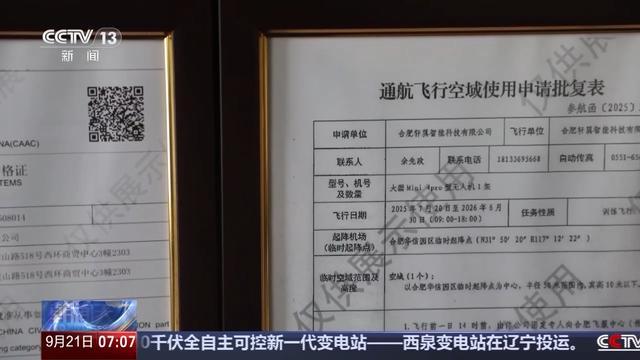 CCTV 13
新闻
NA(CAAC)
格证
TEMS
508014
山路518号西环商贸中心3幢2303
山路518号西环商贸中心3幢2303
part
CHINA CIVI
ing category
仅供展示使用
通航飞行空域使用申请批复表
参航函〔2025〕
申请单位
合肥轩翼智能科技有限公司
飞行单位
合肥轩翼智能科技有限公
联系人
余先政
联系电话
18133695668
自动传真
0551-65
型号、机号及数量
大疆Mini 4pro型无人机1架
飞行日期
2025年7月20日至2026年6月30日(09:00-18:00)
任务性质
训练飞行
起降机场(临时起降点)
合肥华信园区临时起降点(N31°50′20″R117°12′22″)
临时空域范围及高度
空域(1个):
以合肥华信园区临时起降点为中心,半径50米范围内,真高10米以下。
仅供展示使用
9月21日 07:07
0千伏全自主可控新一代变电站——西泉变电站在辽宁投运。
CCTV